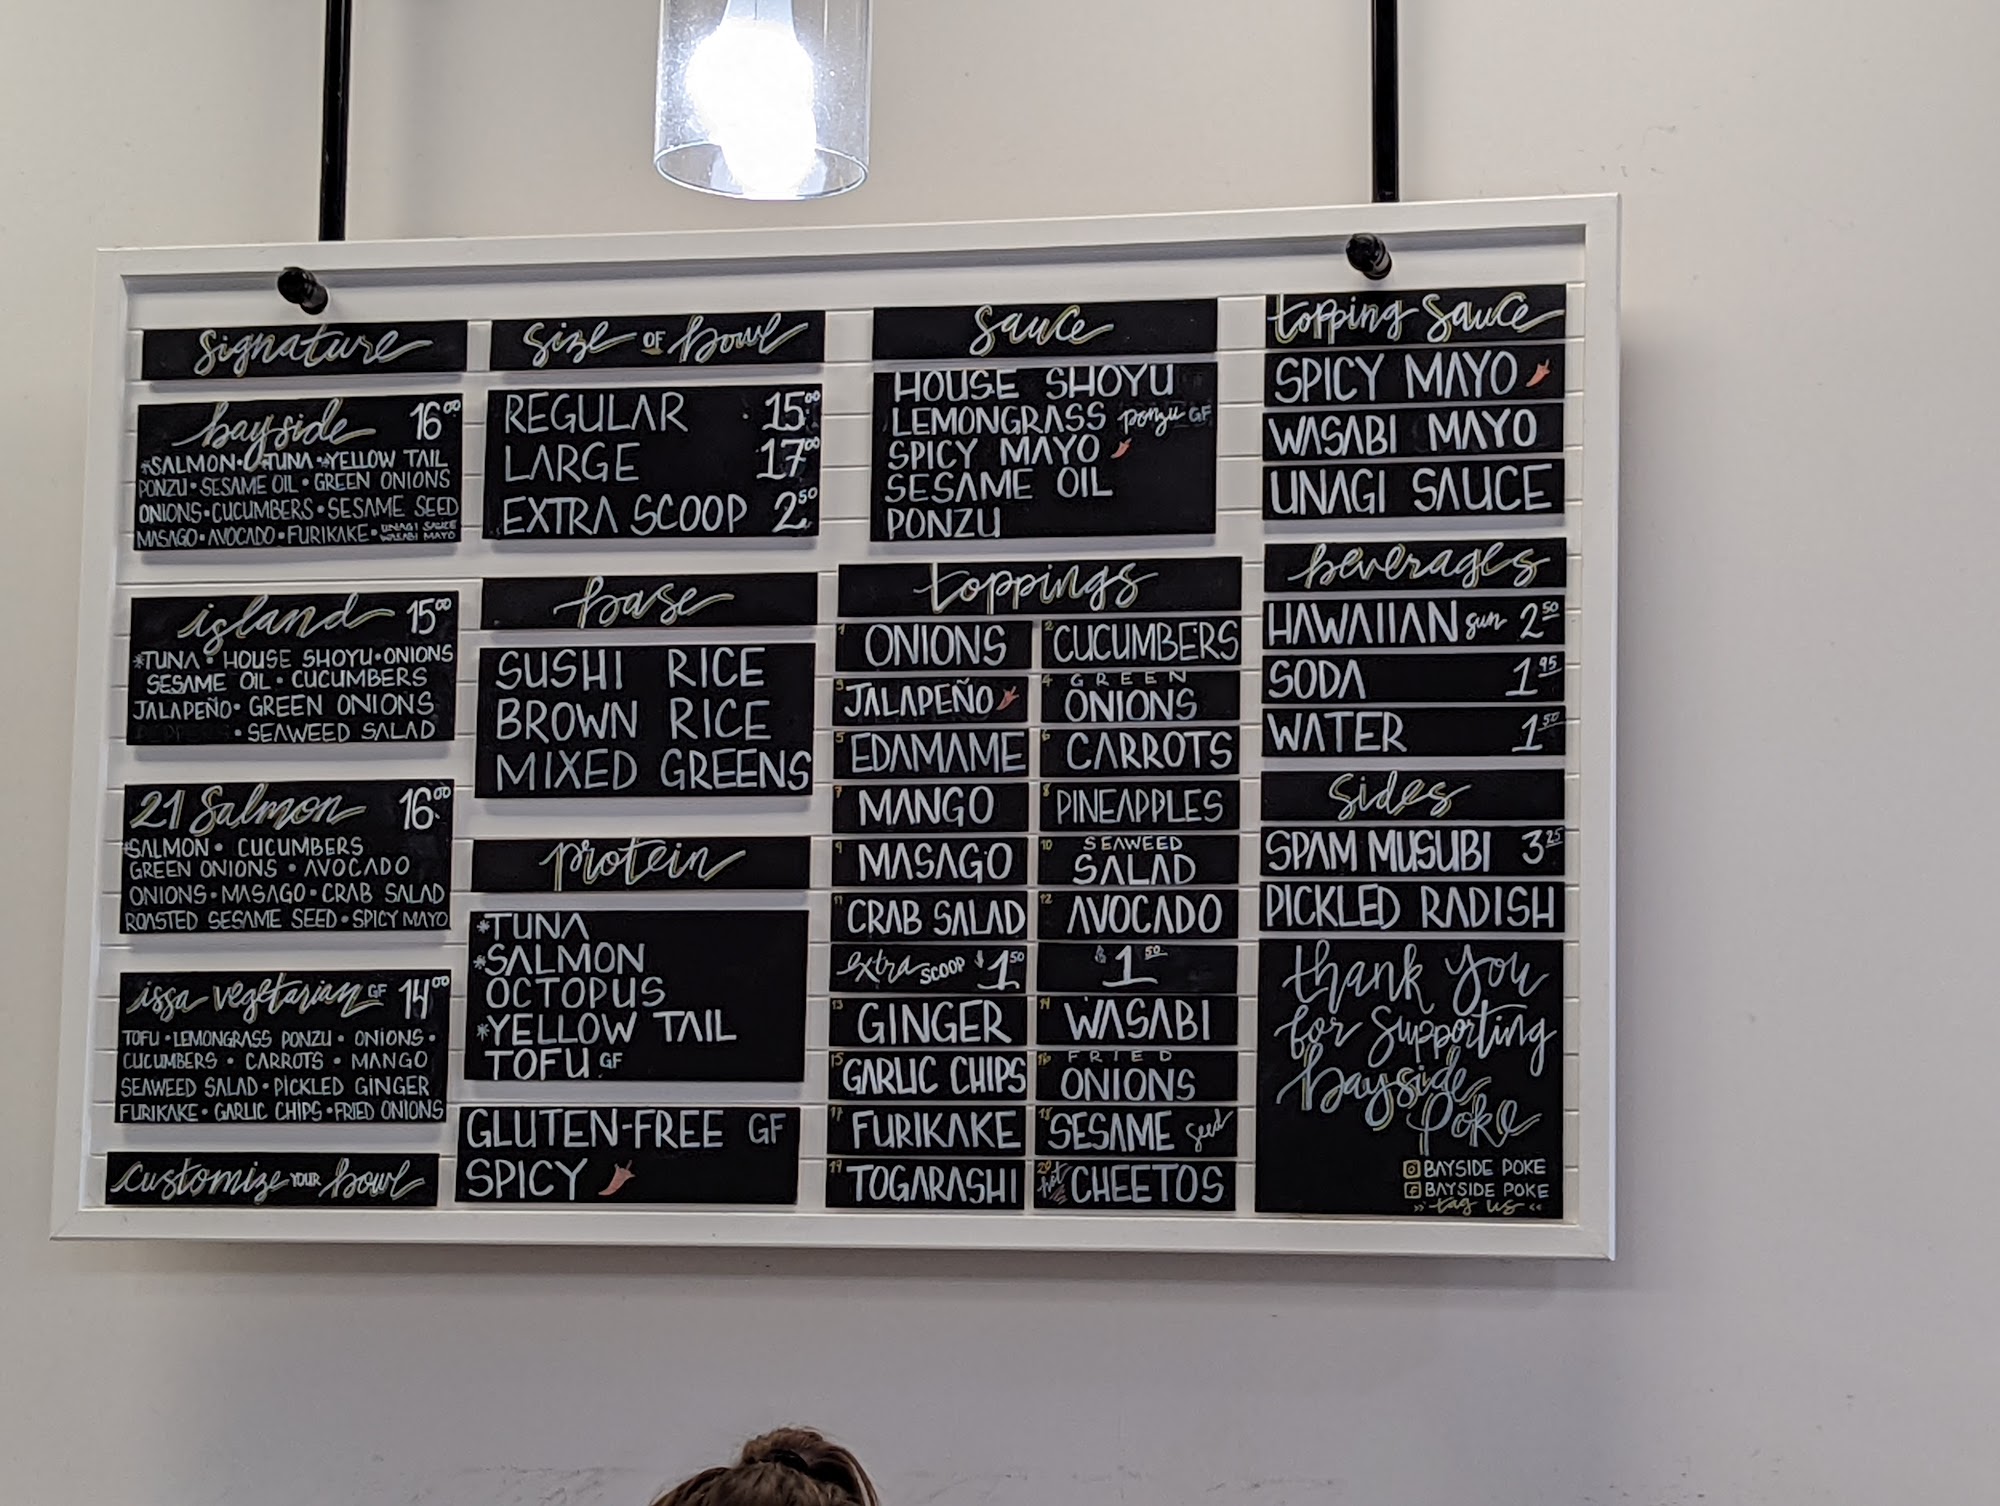 signature
bayside 16⁰⁰
*SALMON • *TUNA • *YELLOW TAIL
PONZU • SESAME OIL • GREEN ONIONS
ONIONS • CUCUMBERS • SESAME SEED
MASAGO • AVOCADO • FURIKAKE • UNAGI SAUCE WASABI MAYO
island 15⁰⁰
*TUNA • HOUSE SHOYU • ONIONS
SESAME OIL • CUCUMBERS
JALAPEÑO • GREEN ONIONS
• SEAWEED SALAD
21 Salmon 16⁰⁰
*SALMON • CUCUMBERS
GREEN ONIONS • AVOCADO
ONIONS • MASAGO • CRAB SALAD
ROASTED SESAME SEED • SPICY MAYO
issa vegetarian GF 14⁰⁰
TOFU • LEMONGRASS PONZU • ONIONS •
CUCUMBERS • CARROTS • MANGO
SEAWEED SALAD • PICKLED GINGER
FURIKAKE • GARLIC CHIPS • FRIED ONIONS
customize YOUR bowl
size OF bowl
REGULAR 15⁰⁰
LARGE 17⁰⁰
EXTRA SCOOP 2⁵⁰
base
SUSHI RICE
BROWN RICE
MIXED GREENS
protein
*TUNA
*SALMON
OCTOPUS
*YELLOW TAIL
TOFU GF
GLUTEN-FREE GF
SPICY
sauce
HOUSE SHOYU
LEMONGRASS ponzu GF
SPICY MAYO
SESAME OIL
PONZU
toppings
1 ONIONS
2 CUCUMBERS
3 JALAPEÑO
4 GREEN ONIONS
5 EDAMAME
6 CARROTS
7 MANGO
8 PINEAPPLES
9 MASAGO
10 SEAWEED SALAD
11 CRAB SALAD
12 AVOCADO
extra SCOOP $1⁵⁰
$1⁵⁰
13 GINGER
14 WASABI
15 GARLIC CHIPS
16 FRIED ONIONS
17 FURIKAKE
18 SESAME seed
19 TOGARASHI
20 hot CHEETOS
topping sauce
SPICY MAYO
WASABI MAYO
UNAGI SAUCE
beverages
HAWAIIAN sun 2⁵⁰
SODA 1⁹⁵
WATER 1⁵⁰
sides
SPAM MUSUBI 3²⁵
PICKLED RADISH
thank you
for supporting
bayside
poke
BAYSIDE POKE
BAYSIDE POKE
»tag us«